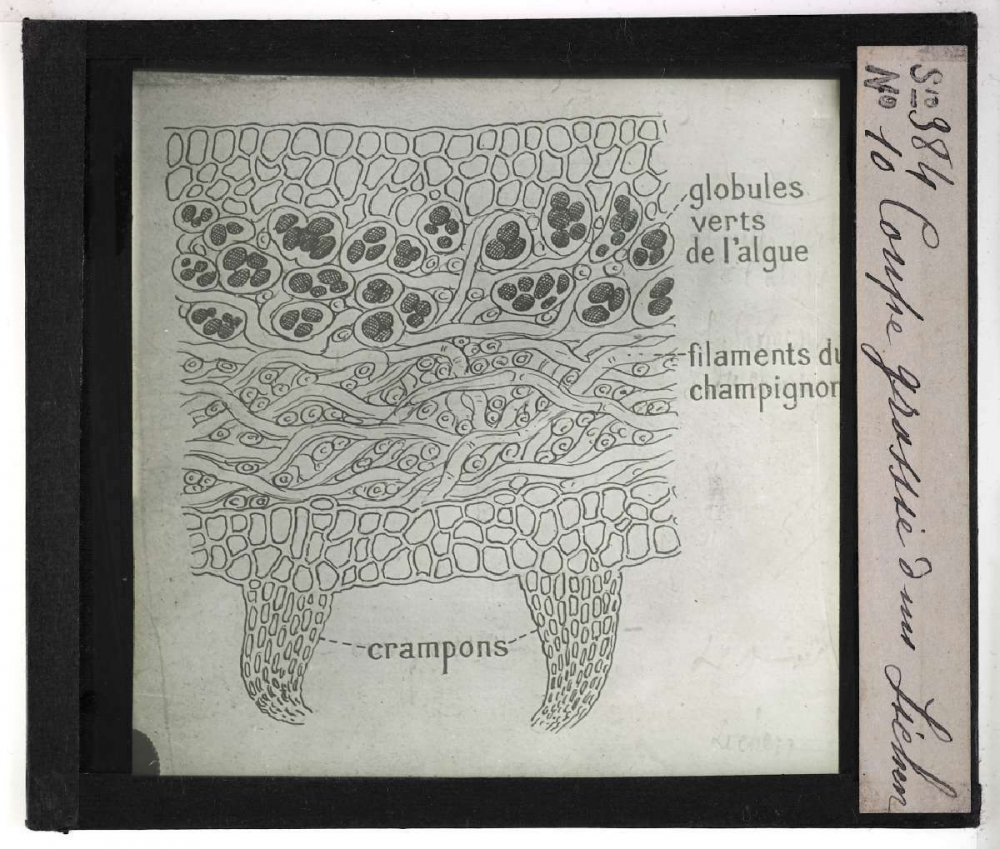 globules
verts
de l'algue
filaments du
champignon
crampons
Sie 984
No 10 Coupe grossie d'un Lichen